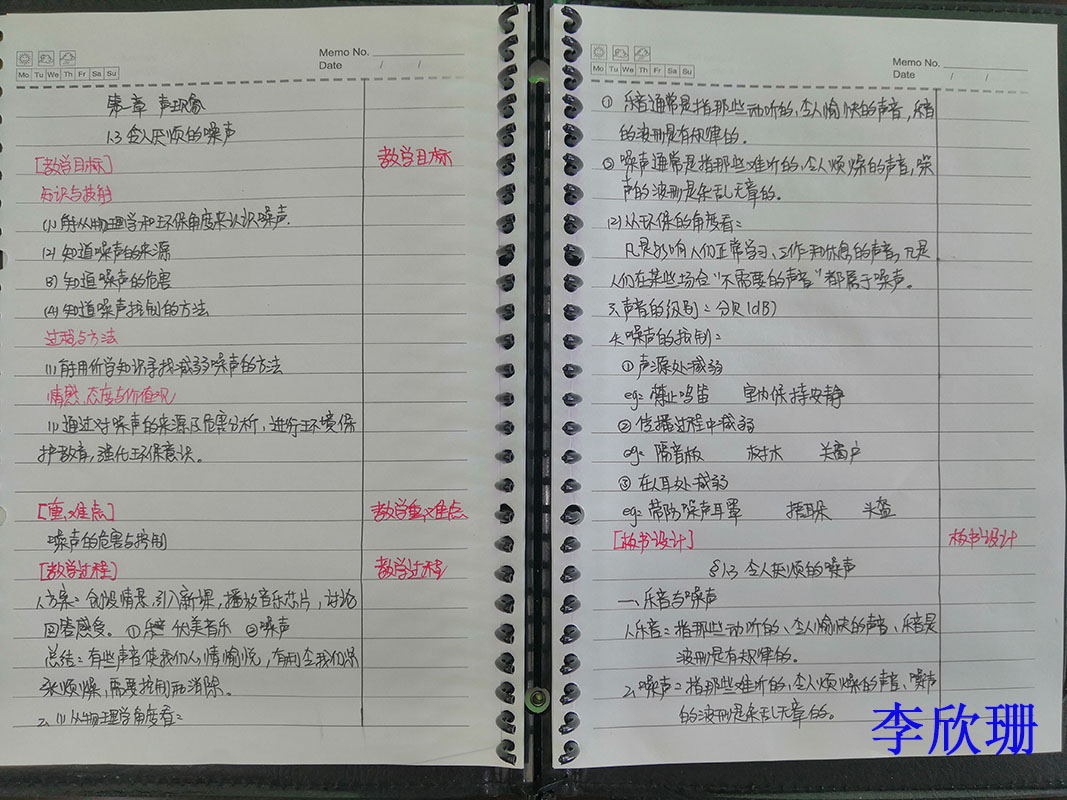 Memo No.
Date / /
Mo Tu We Th Fr Sa Su
第一章 声现象
1.3 令人厌烦的噪声
[教学目标]
教学目标
知识与技能
(1) 能从物理学和环保角度来认识噪声.
(2) 知道噪声的来源
(3) 知道噪声的危害
(4) 知道噪声控制的方法
过程与方法
(1) 能用所学知识寻找减弱噪声的方法
情感、态度与价值观
(1) 通过对噪声的来源及危害分析，进行环境保
护教育，强化环保意识。
[重、难点]
教学重、难点
噪声的危害与控制
[教学过程]
教学过程
1.方案：创设情景，引入新课，播放音乐芯片，讨论
回答感受。 ① 优美音乐 ②噪声
总结：有些声音使我们心情愉悦，有则令我们
烦燥，需要控制和消除。
2、(1) 从物理学角度看：
Memo No.
Date / /
Mo Tu We Th Fr Sa Su
① 乐音通常是指那些动听的、令人愉快的声音，乐音
的波形是有规律的。
② 噪声通常是指那些难听的、令人烦燥的声音，噪
声的波形是杂乱无章的。
(2) 从环保的角度看：
凡是影响人们正常学习、工作和休息的声音，凡是
人们在某些场合“不需要的声音”都属于噪声。
3.声音的级别：分贝(dB)
4.噪声的控制：
①声源处减弱
eg: 禁止鸣笛 室内保持安静
②传播过程中减弱
eg: 隔音板 树木 关窗户
③在人耳处减弱
eg: 带防噪声耳罩 捂耳朵 头盔
[板书设计]
板书设计
§1.3 令人厌烦的噪声
一、乐音与噪声
1.乐音：指那些动听的、令人愉快的声音、乐音是
波形是有规律的。
2、噪声：指那些难听的、令人烦燥的声音、噪声
的波形是杂乱无章的。
李欣珊